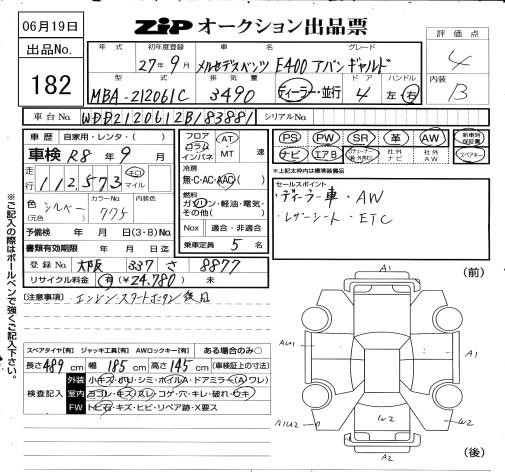 06月19日
出品No.
182
ZIPオークション出品票
年式 初年度登録 車名 グレード
27年9月 メルセデスベンツ E400 アバンギャルド
型式 排気量 ドア ハンドル
MBA-212061C 3490 ディーラー・並行 4 左・右
評価点
4
内装
B
車台No. WDD2120612B183881 シリアルNo.
車歴 自家用・レンタ・( )
車検 R8年9月
走行 112,573 キロ マイル
色(元色) シルバー カラーNo. 775 内装色
予備検 年 月 日(3・8)No.
書類有効期限 年 月 日迄
登録No. 大阪 337 さ 8877
リサイクル料金 有(¥24,780) 未
フロア コラム インパネ AT・MT 速
冷房
無・C・AC・AAC
燃料
ガソリン・軽油・電気・その他( )
Nox 適合・非適合
乗車定員 5名
PS PW SR 革 AW 新車時保証書
ナビ エアB 社外ナビ 社外AW スペアキー
※上記太枠内は標準装備品
セールスポイント
・ディーラー車・AW
・レザーシート・ETC
[注意事項] エンジンスタートボタン後日
※ご記入の際はボールペンで強くご記入下さい。
スペアタイヤ[有] ジャッキ工具[有] AWロックキー[有] ある場合のみ○
長さ489cm 幅185cm 高さ145cm (車検証上の寸法)
検査記入
外装 小キズ・ホリ・シミ・ボイルA・ドアミラー(A)ワレ)
室内 ヨゴレ・キズ・スレ・コゲ・穴・キレ・破れ・ウキ
FW トビ石・キズ・ヒビ・リペア跡・X要ス
(前)
A1
AU1
A1
A1U2
W2
W2
A2
(後)